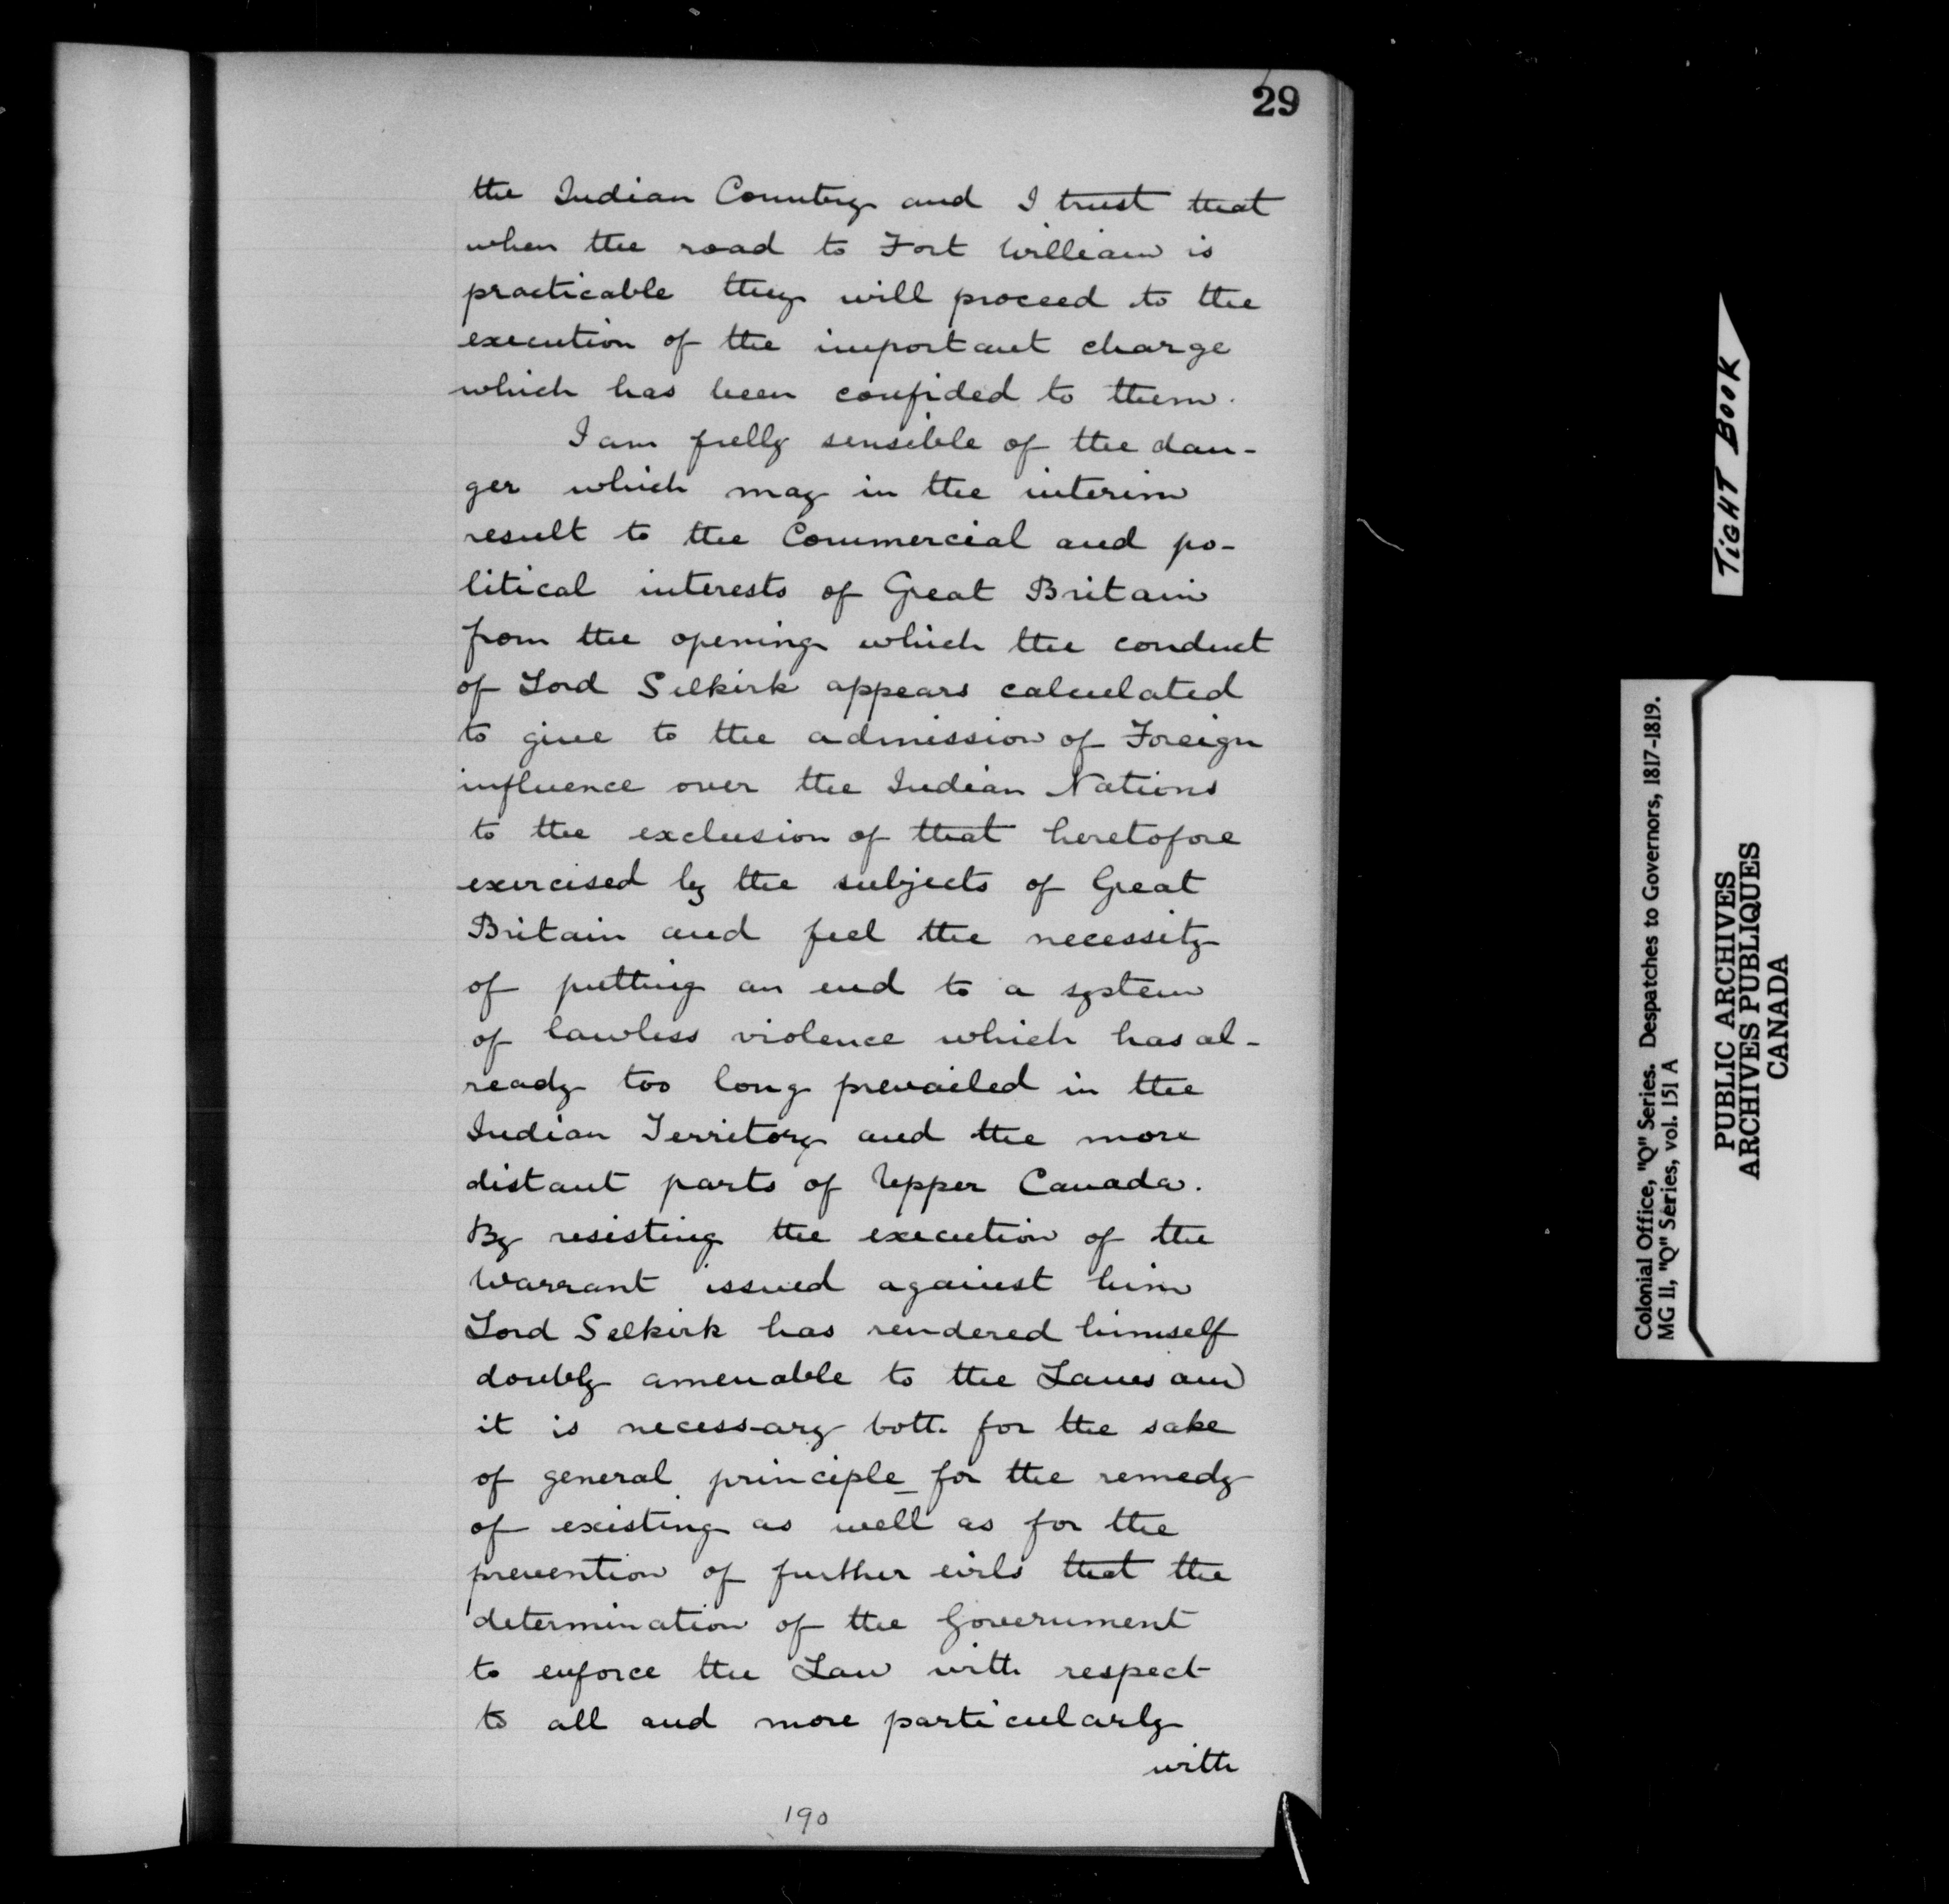 29
the Indian Country and I trust that
when the road to Fort William is
practicable they will proceed to the
execution of the important charge
which has been confided to them.
I am fully sensible of the dan-
ger which may in the interim
result to the Commercial and po-
litical interests of Great Britain
from the opening which the conduct
of Lord Selkirk appears calculated
to give to the admission of Foreign
influence over the Indian Nations
to the exclusion of that heretofore
exercised by the subjects of Great
Britain and feel the necessity
of putting an end to a system
of lawless violence which has al-
ready too long prevailed in the
Indian Territory and the more
distant parts of Upper Canada.
By resisting the execution of the
Warrant issued against him
Lord Selkirk has rendered himself
doubly amenable to the Laws and
it is necessary both for the sake
of general principle for the remedy
of existing as well as for the
prevention of further evils that the
determination of the Government
to enforce the Law with respect
to all and more particularly
with
190
TIGHT BOOK
Colonial Office, "Q" Series. Despatches to Governors, 1817-1819.
MG 11, "Q" Series, vol. 151 A
PUBLIC ARCHIVES
ARCHIVES PUBLIQUES
CANADA